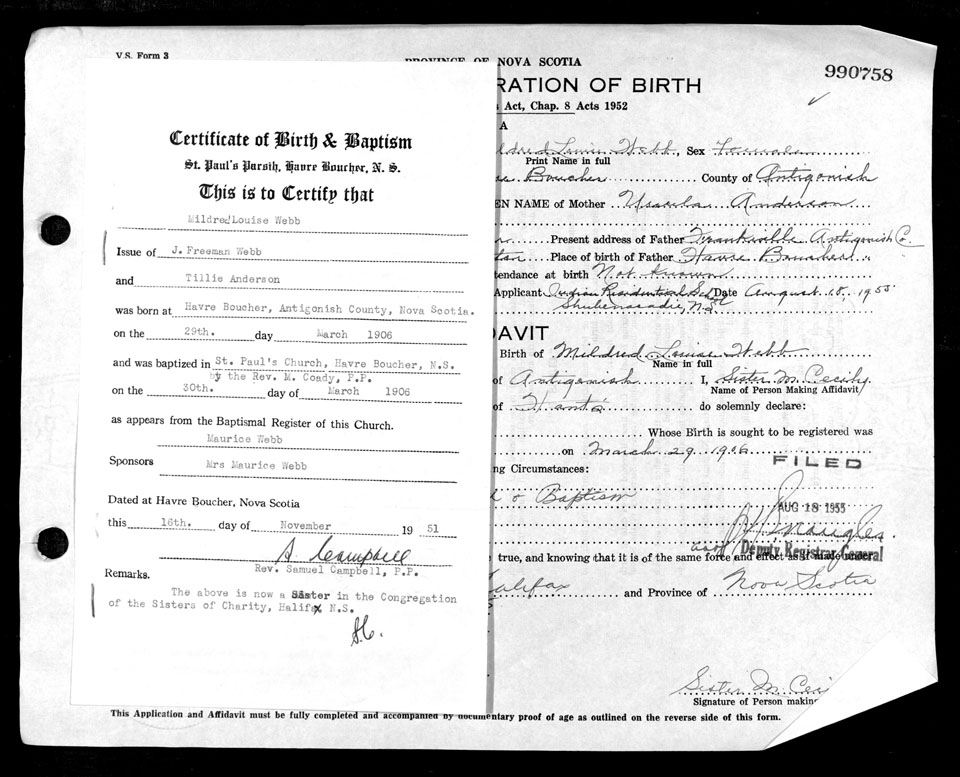 V.S. Form 3
PROVINCE OF NOVA SCOTIA
990758
RATION OF BIRTH
Act, Chap. 8 Acts 1952
A
Certificate of Birth & Baptism
St. Paul's Parsih, Havre Boucher, N. S.
This is to Certify that
Mildred Louise Webb
Issue of J. Freeman Webb
and Tillie Anderson
was born at Havre Boucher, Antigonish County, Nova Scotia.
on the 29th. day March 1906
and was baptized in St. Paul's Church, Havre Boucher, N.S.
by the Rev. M. Coady, P.P.
on the 30th. day of March 1906
as appears from the Baptismal Register of this Church.
Maurice Webb
Sponsors Mrs Maurice Webb
Dated at Havre Boucher, Nova Scotia
this 16th. day of November 19 51
S. Campbell
Rev. Samuel Campbell, P.P.
Remarks.
The above is now a Sister in the Congregation
of the Sisters of Charity, Halifax N.S.
S.C.
ldred Louise Webb, Sex Female
Print Name in full
Boucher County of Antigonish
EN NAME of Mother Ursula Anderson
Present address of Father Frankville Antigonish Co.
Place of birth of Father Havre Boucher
tendance at birth Not Known
Applicant Indian Residential School Date August 18, 1955
Shubenacadie, N.S.
DAVIT
Birth of Mildred Louise Webb
Name in full
of Antigonish I, Sister M. Cecily
Name of Person Making Affidavit
of Hants do solemnly declare:
Whose Birth is sought to be registered was
on March 29, 1906
ng Circumstances:
o Baptism
FILED
AUG 18 1955
Deputy Registrar General
true, and knowing that it is of the same force and effect as if made under
alifax and Province of Nova Scotia
Sister M. Ceci
Signature of Person making
This Application and Affidavit must be fully completed and accompanied by documentary proof of age as outlined on the reverse side of this form.